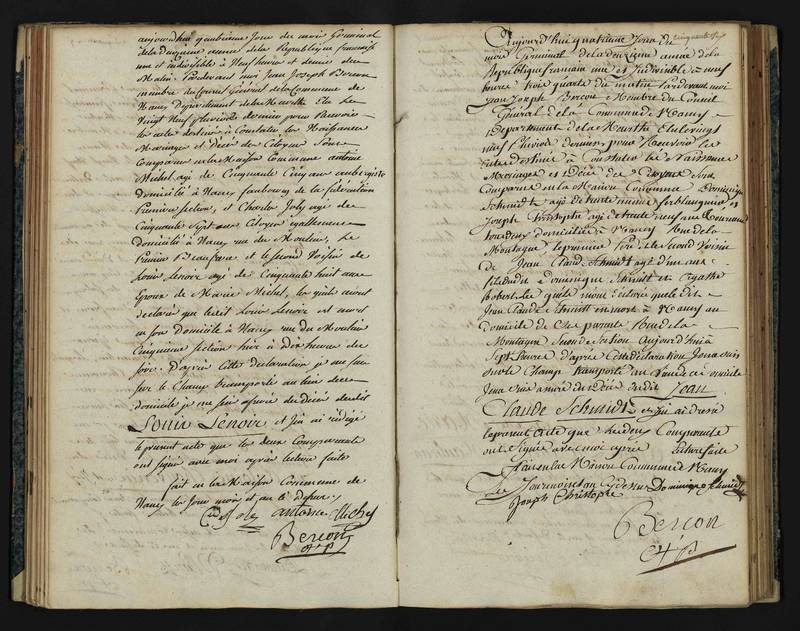 aujourd'hui quatrieme Jour du mois Germinal
de la deuxieme année de la Republique francaise
une et indivisible à neuf heures et demie du
Matin. Pardevant moi Jean Joseph Bercon
membre du Conseil General de la Commune de
Nancy Departement de la Meurthe Elu Le
Vingt Neuf pluviose dernier pour Recevoir
les actes destinés à Constater les Naissances
Mariages et Décès des Citoyens Sont
Comparus en la Maison Commune antoine
Michel agé de Cinquante Cinq ans aubergiste
domicilié à Nancy faubourg de la fédération
Premiere section, et Charles Joly agé de
Cinquante Sept ans Citoyen egallement
Domicilié à Nancy rue du Moulin, Le
Premier Beaufrere et le second Voisin de
Louis Lenoir agé de Cinquante huit ans
Epoux de Marie Michel, les quels m'ont
declaré que ledit Louis Lenoir est mort
en son Domicile à Nancy rue du Moulin
Cinquieme section hier à dix heures du
soir. D'après Cette déclaration je me suis
sur le Champ transporté au lieu de ce
domicile je me suis assuré du décès dudit
Louis Lenoir et J'en ai rédigé
le présent acte que les deux Comparants
ont signé avec moi après lecture faite
fait en la Maison Commune de
Nancy les Jour mois et an ci dessus.
antoine Michel
Bercon
Aujourd'hui quatrieme Jour du
mois Germinal de la deuxieme année de la
Republique francaise une et Indivisible à neuf
heures trois quarts du matin Pardevant moi
Jean Joseph Bercon Membre du Conseil
Général de la Commune de Nancy
Departement de la Meurthe Elu le vingt
neuf Pluviose dernier, pour Recevoir les
actes destinés à Constater les Naissances
Mariages et décès des Citoyens Sont
Comparus en la Maison Commune Dominique
Schmidt agé de trente ans ferblanquier, et
Joseph Christophe agé de trente neuf ans Tourneur
tous deux domiciliés à Nancy Rue de la
Montagne le premier Pere & le second Voisin
de Jean Claude Schmidt agé d'un an
fils de Dominique Schmidt et Agathe
Robert Les quels m'ont déclaré que le dit
Jean Claude Schmidt est mort à Nancy au
Domicile de ses parents Rue de la
Montagne Seconde Section Aujourd'hui à
Sept heures d'après Cette déclaration Je me suis
sur le Champ transporté au lieu de ce domicile
Je me suis assuré du décès dudit Jean
Claude Schmidt et J'en ai dressé
le present acte que les deux Comparants
ont signé avec moi après lecture faite
fait en la Maison Commune de Nancy
Les Jour mois et an ci dessus Dominique Schmidt
Joseph Christophe
Bercon